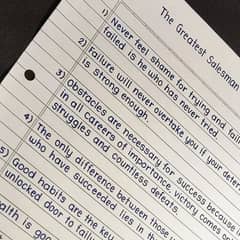 The Greatest Salesman
1) Never feel shame for trying and fail
failed is he who has never tried.
2) failure will never overtake you if your deter
is strong enough.
3) obstacles are necessary for success because
in all careers of importance, victory comes
struggles and countless defeats.
4) The only difference between those
who have succeeded lies in th
5) Good habits are the key
unlocked door to fail
aith is goo